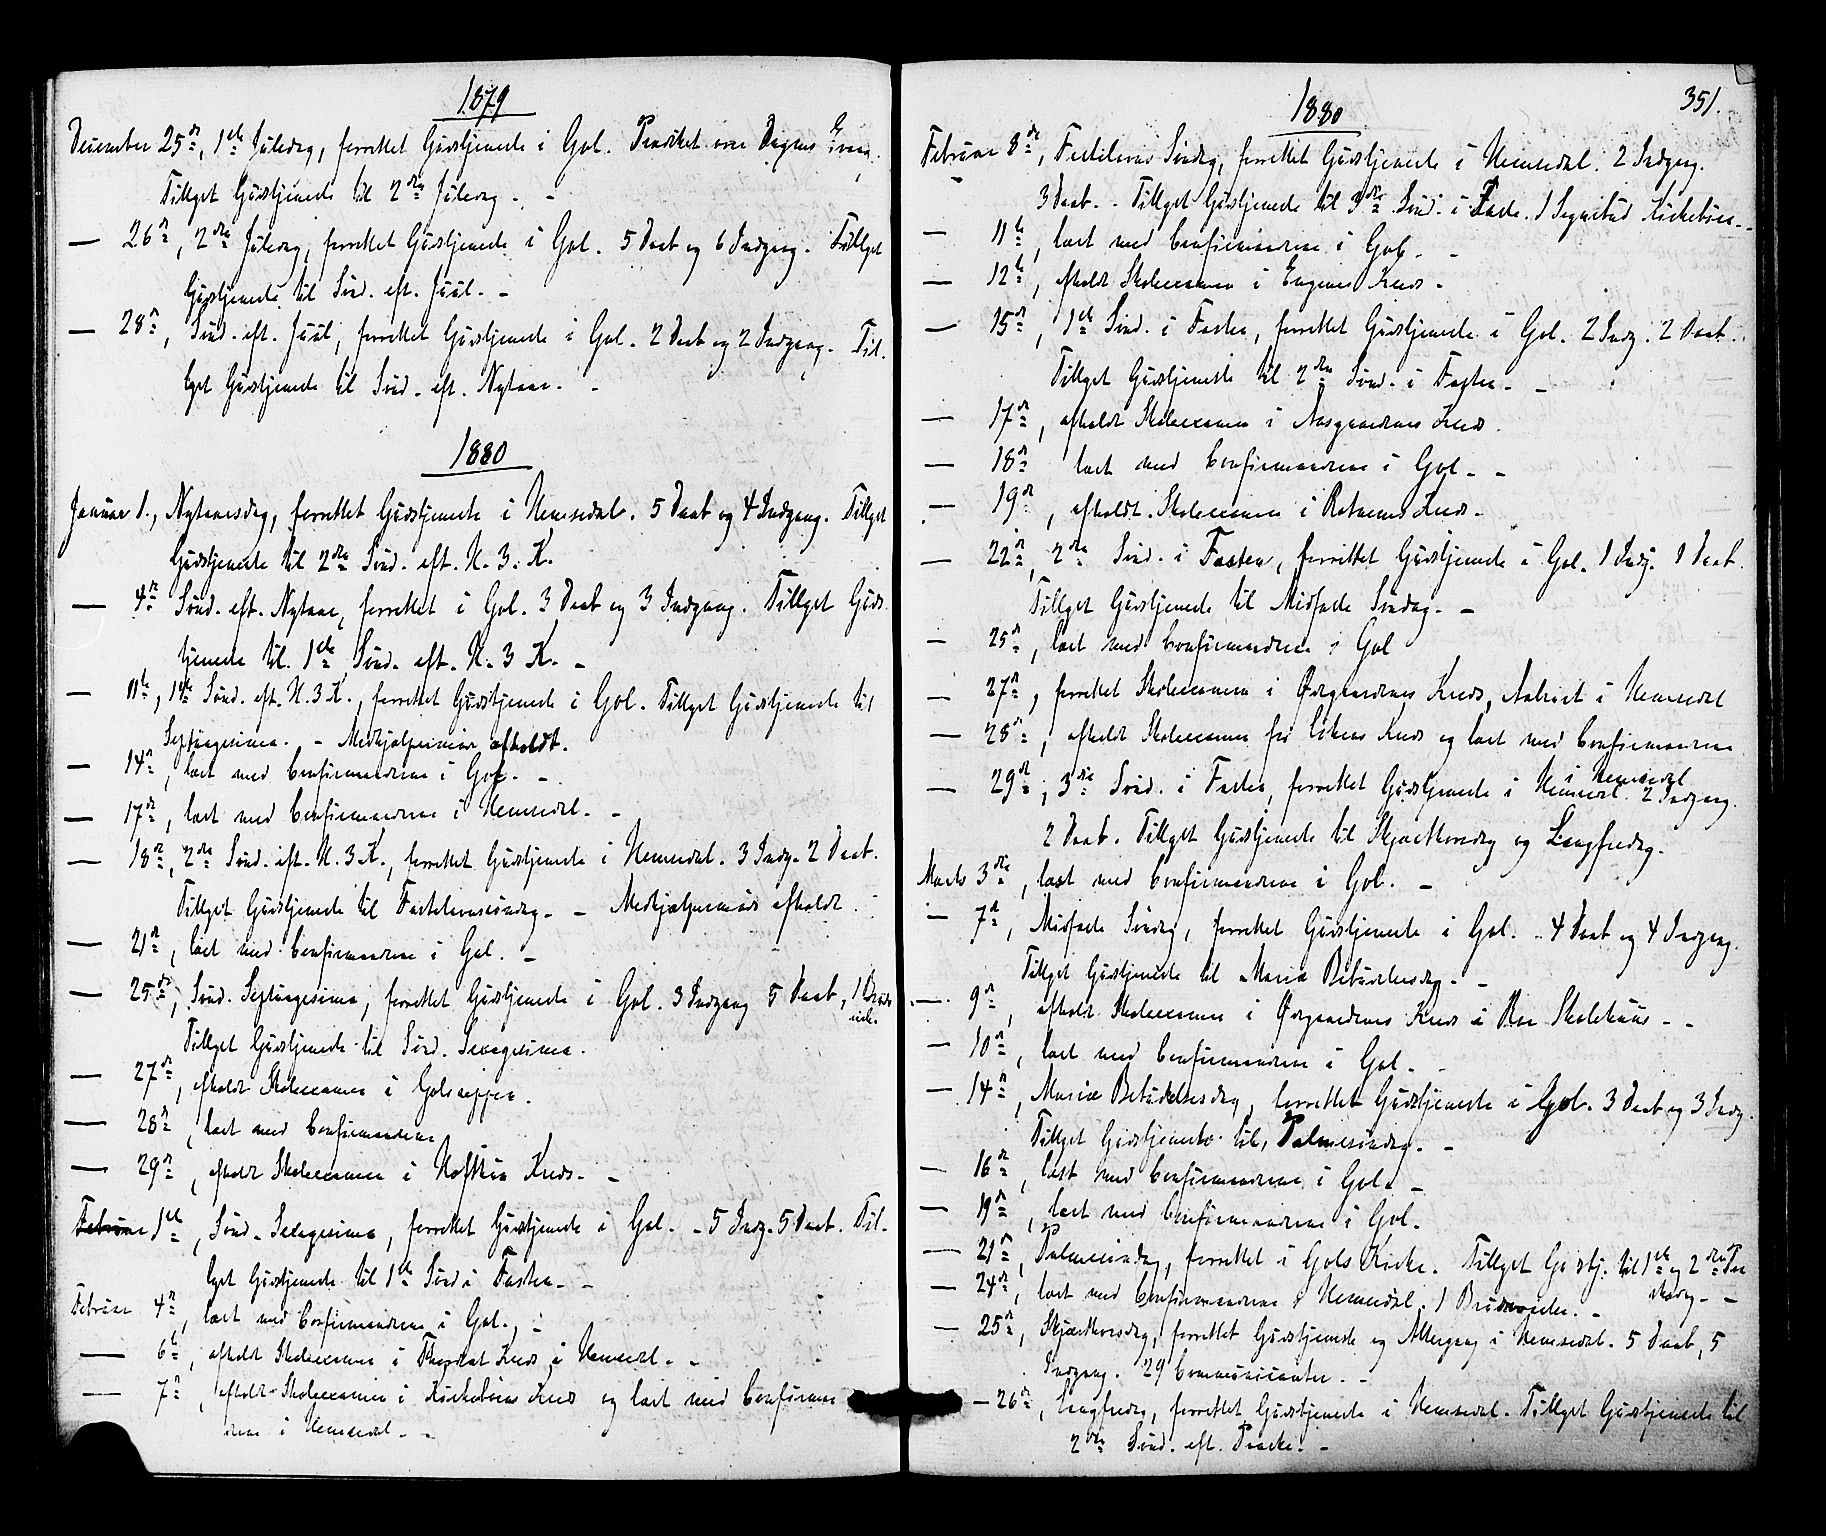 1879
December 25de, 1ste Juledag, forrettet Gudstjeneste i Gol. Prædiket over Dagens Evang.
Tillyst Gudstjeneste til 2den Juledag. -
— 26de, 2den Juledag, forrettet Gudstjeneste i Gol. 5 Daab og 6 Indgang. Tillyst
Gudstjeneste til Sønd. eft. Juul. -
— 28de, Sønd. eft. Juul, forrettet Gudstjeneste i Gol. 2 Daab og 2 Indgang. Til-
lyst Gudstjeneste til Sønd. eft. Nytaar. -
1880
Januar 1., Nytaarsdag, forrettet Gudstjeneste i Hemsedal. 5 Daab og 4 Indgang. Tillyst
Gudstjeneste til 2den Sønd. eft. H. 3. K.
— 4de Sønd. eft. Nytaar, forrettet i Gol. 3 Daab og 3 Indgang. Tillyst Guds-
tjeneste til 1ste Sønd. eft. H. 3 K. -
— 11te, 1ste Sønd. eft. H. 3 K., forrettet Gudstjeneste i Gol. Tillyst Gudstjeneste til
Septuagesima. - Medhjælpermøde afholdt.
— 14de, læst med Confirmanderne i Gol. -
— 17de, læst med Confirmanderne i Hemsedal. -
— 18de, 2den Sønd. eft. H. 3 K., forrettet Gudstjeneste i Hemsedal. 3 Indg. 2 Daab.
Tillyst Gudstjeneste til Fastelavnssøndag. - Medhjælpermøde afholdt.
— 21de, læst med Confirmanderne i Gol. -
— 25de, Sønd. Septuagesima, forrettet Gudstjeneste i Gol. 3 Indgang 5 Daab, 1 Brude
vielse.
Tillyst Gudstjeneste til Sønd. Sexagesima.
— 27de, afholdt Skoleexamen i Golreppen.
— 28de, læst med Confirmanderne
— 29de, afholdt Skoleexamen i Kreds. -
Februar 1ste, Sønd. Sexagesima, forrettet Gudstjeneste i Gol. - 5 Indg. 5 Daab. Til-
lyst Gudstjeneste til 1ste Sønd i Fasten. -
Februar 4de, læst med Confirmanderne i Gol. -
— 6te, afholdt Skoleexamen i Kreds i Hemsedal. -
— 7de, afholdt Skoleexamen i Kirkebøens Kreds og læst med Confirman-
derne i Hemsedal. -
351.
1880
Februar 8de, Fastelavns Søndag, forrettet Gudstjeneste i Hemsedal. 2 Indgang.
3 Daab. - Tillyst Gudstjeneste til 3die Sønd. i Faste. 1 Kirkebøen. -
— 11te, læst med Confirmanderne i Gol. -
— 12te, afholdt Skoleexamen i Engenes Kreds -
— 15de, 1ste Sønd. i Fasten, forrettet Gudstjeneste i Gol. 2 Indg. 2 Daab.
Tillyst Gudstjeneste til 2den Sønd. i Fasten. -
— 17de, afholdt Skoleexamen i Aasgaardenes Kreds.
— 18de læst med Confirmanderne i Gol. -
— 19de, afholdt Skoleexamen i Rotnemes Kreds.
— 22de, 2den Sønd. i Fasten, forrettet Gudstjeneste i Gol. 1 Indg. 1 Daab.
Tillyst Gudstjeneste til Midfaste Søndag. -
— 25de, læst med Confirmanderne i Gol
— 27de, forrettet Skoleexamen i Øvgaardenes Kreds, i Hemsedal
— 28de, afholdt Skoleexamen for Kreds og læst med Confirmanderne
i Hemsedal
— 29de, 3die Sønd. i Fasten, forrettet Gudstjeneste i Hemsedal. 2 Indgang.
2 Daab. Tillyst Gudstjeneste til Skjærthorsdag og Langfredag.
Marts 3die, læst med Confirmanderne i Gol. -
— 7de, Midfaste Søndag, forrettet Gudstjeneste i Gol. - 4 Daab og 4 Indgang.
Tillyst Gudstjeneste til Mariæ Bebudelsesdag. -
— 9de, afholdt Skoleexamen i Øvgaardenes Kreds i Skolehuus. -
— 10de, læst med Confirmanderne i Gol. -
— 14de, Mariæ Bebudelsesdag, forrettet Gudstjeneste i Gol. 3 Daab og 3 Indg.
Tillyst Gudstjeneste til Palmesøndag. -
— 16de, læst med Confirmanderne i Gol. -
— 19de, læst med Confirmanderne i Gol.
— 21de, Palmesøndag, forrettet i Gols Kirke. Tillyst Gudstj. til 1ste og 2den Paa
skedag. -
— 24de, læst med Confirmanderne i Hemsedal. 1 Brudevielse. -
— 25de, Skjærthorsdag, forrettet Gudstjeneste og Altergang i Hemsedal. 5 Daab, 5
Indgang. 29 Communicanter. -
— 26de, Langfredag, forrettet Gudstjeneste i Hemsedal. Tillyst Gudstjeneste til
2den Sønd. eft. Paaske. -